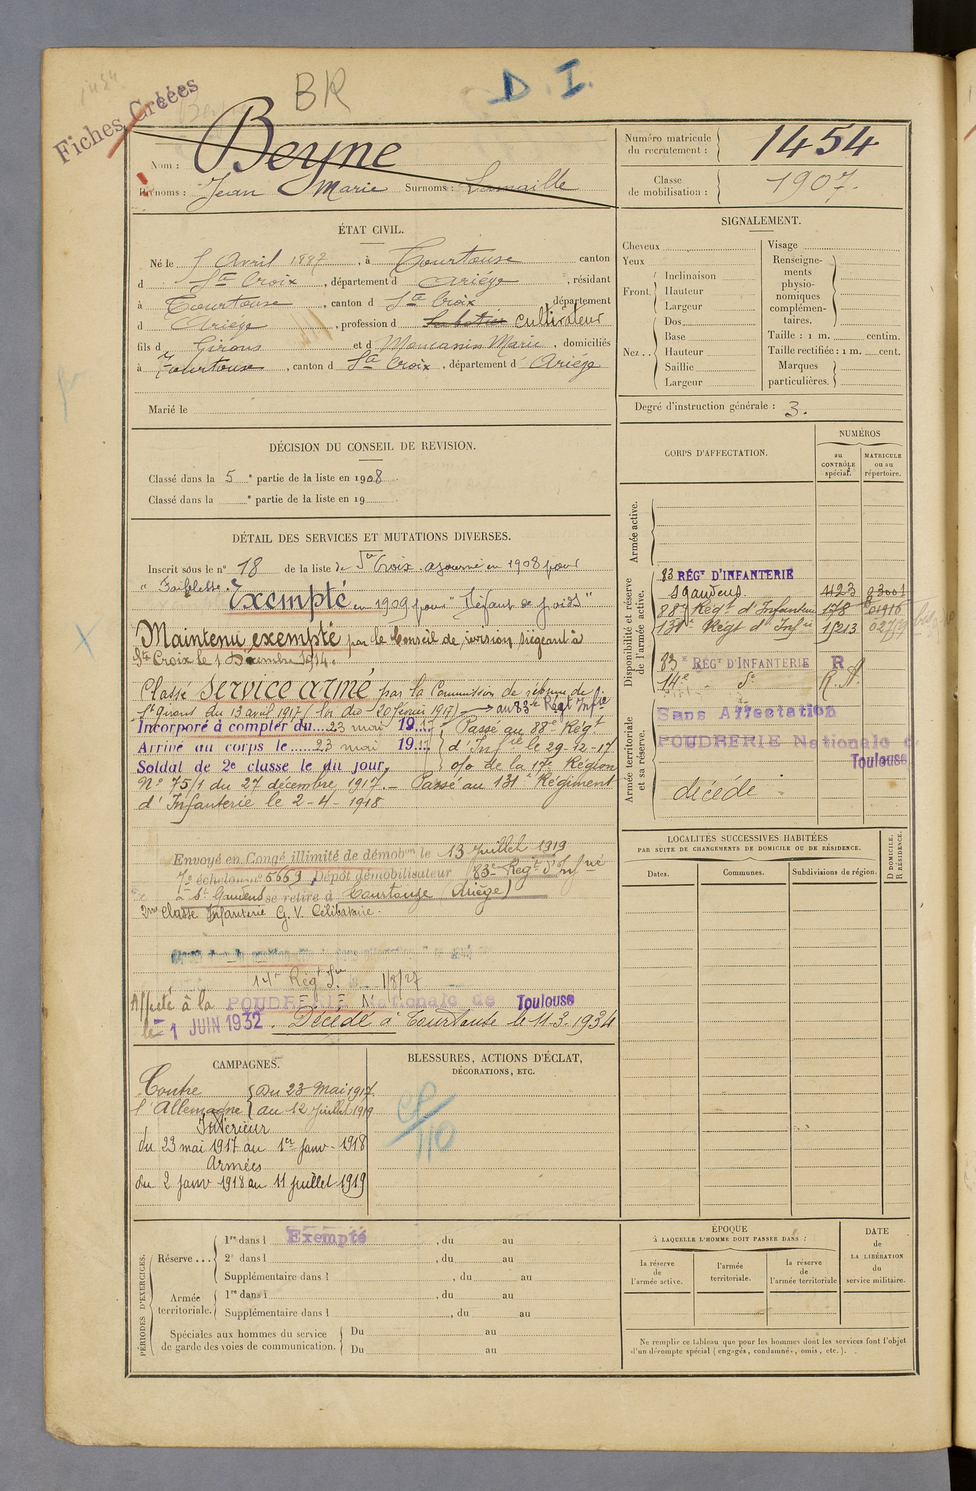 1454
BR
D. I.
Fiches Créées
Nom : Beyne
Prénoms : Jean Marie Surnoms : Lamaille
Numéro matricule du recrutement : 1454
Classe de mobilisation : 1907.
ÉTAT CIVIL.
Né le Avril 1887, à Tourtouse canton
d Ste Croix, département d Ariège, résidant
à Tourtouse, canton d Ste Croix, département
d Ariège, profession d Sabotier cultivateur
fils d Girons et d Marie, domiciliés
à Tourtouse, canton d Ste Croix, département d Ariège
Marié le
SIGNALEMENT.
Cheveux
Yeux
Front. Inclinaison
Hauteur
Largeur
Nez .. Dos
Base
Hauteur
Saillie
Largeur
Visage
Renseignements physionomiques complémentaires.
Taille : 1 m. centim.
Taille rectifiée : 1 m. cent.
Marques particulières.
Degré d'instruction générale : 3.
DÉCISION DU CONSEIL DE REVISION.
Classé dans la 5 e partie de la liste en 1908
Classé dans la e partie de la liste en 19
CORPS D'AFFECTATION.
NUMÉROS
au CONTRÔLE spécial.
MATRICULE ou au répertoire.
Armée active.
Disponibilité et réserve de l'armée active.
83 RÉGt D'INFANTERIE
St Gaudens 4123
88e Régt d'Infanterie 178
131e Régt d'Infie 15213
83e RÉGt D'INFANTERIE R
14e de R.A.
Armée territoriale et sa réserve.
Sans Affectation
POUDRERIE Nationale de
Toulouse
décédé
DÉTAIL DES SERVICES ET MUTATIONS DIVERSES.
Inscrit sous le n° 18 de la liste de Ste Croix. ajourné en 1908 pour
" Faiblesse. Exempté en 1909 pour "Défaut de poids"
Maintenu exempté par le Conseil de révision siégeant à
Ste Croix le 1 Décembre 1914.
Classé service armé par la Commission de réforme de
St Girons du 13 avril 1917 (loi du 20 février 1917) → au 83e Régt Infie
Incorporé à compter du 23 mai 1917 Passé au 88e Régt
Arrivé au corps le 23 mai 1917 d'Infie le 29-12-17
Soldat de 2e classe le du jour, o/o de la 17e Région
N° 75/1 du 27 décembre 1917. - Passé au 131e Régiment
d'Infanterie le 2-4-1918
Envoyé en Congé illimité de démobon le 13 Juillet 1919
7e échelon n° 5669, Dépôt démobilisateur 83e Régt d'Infrie
à St Gaudens se retire à Tourtouse (Ariège)
2me classe Infanterie G. V. Célibataire.
14e Régt 1/8/27
Affecté à la POUDRERIE Nationale de Toulouse
le 1 JUIN 1932. Décédé à Tourtouse le 11-3-1934
LOCALITÉS SUCCESSIVES HABITÉES
PAR SUITE DE CHANGEMENTS DE DOMICILE OU DE RÉSIDENCE.
Dates.
Communes.
Subdivisions de région.
D DOMICILE. R RÉSIDENCE.
CAMPAGNES.
Contre l'Allemagne du 23 Mai 1917
au 12 Juillet 1919
Intérieur
du 23 mai 1917 au 1er janv. 1918
Armées
du 2 janv 1918 au 11 juillet 1919
BLESSURES, ACTIONS D'ÉCLAT,
DÉCORATIONS, ETC.
110
PÉRIODES D'EXERCICES.
Réserve ... 1re dans l Exempté, du au
2e dans l , du au
Supplémentaire dans l , du au
Armée territoriale. 1re dans l , du au
Supplémentaire dans l , du au
Spéciales aux hommes du service de garde des voies de communication. Du au
Du au
ÉPOQUE
À LAQUELLE L'HOMME DOIT PASSER DANS :
la réserve de l'armée active.
l'armée territoriale.
la réserve de l'armée territoriale
DATE
de
LA LIBÉRATION
du
service militaire.
Ne remplir ce tableau que pour les hommes dont les services font l'objet
d'un décompte spécial (engagés, condamnés, omis, etc.).